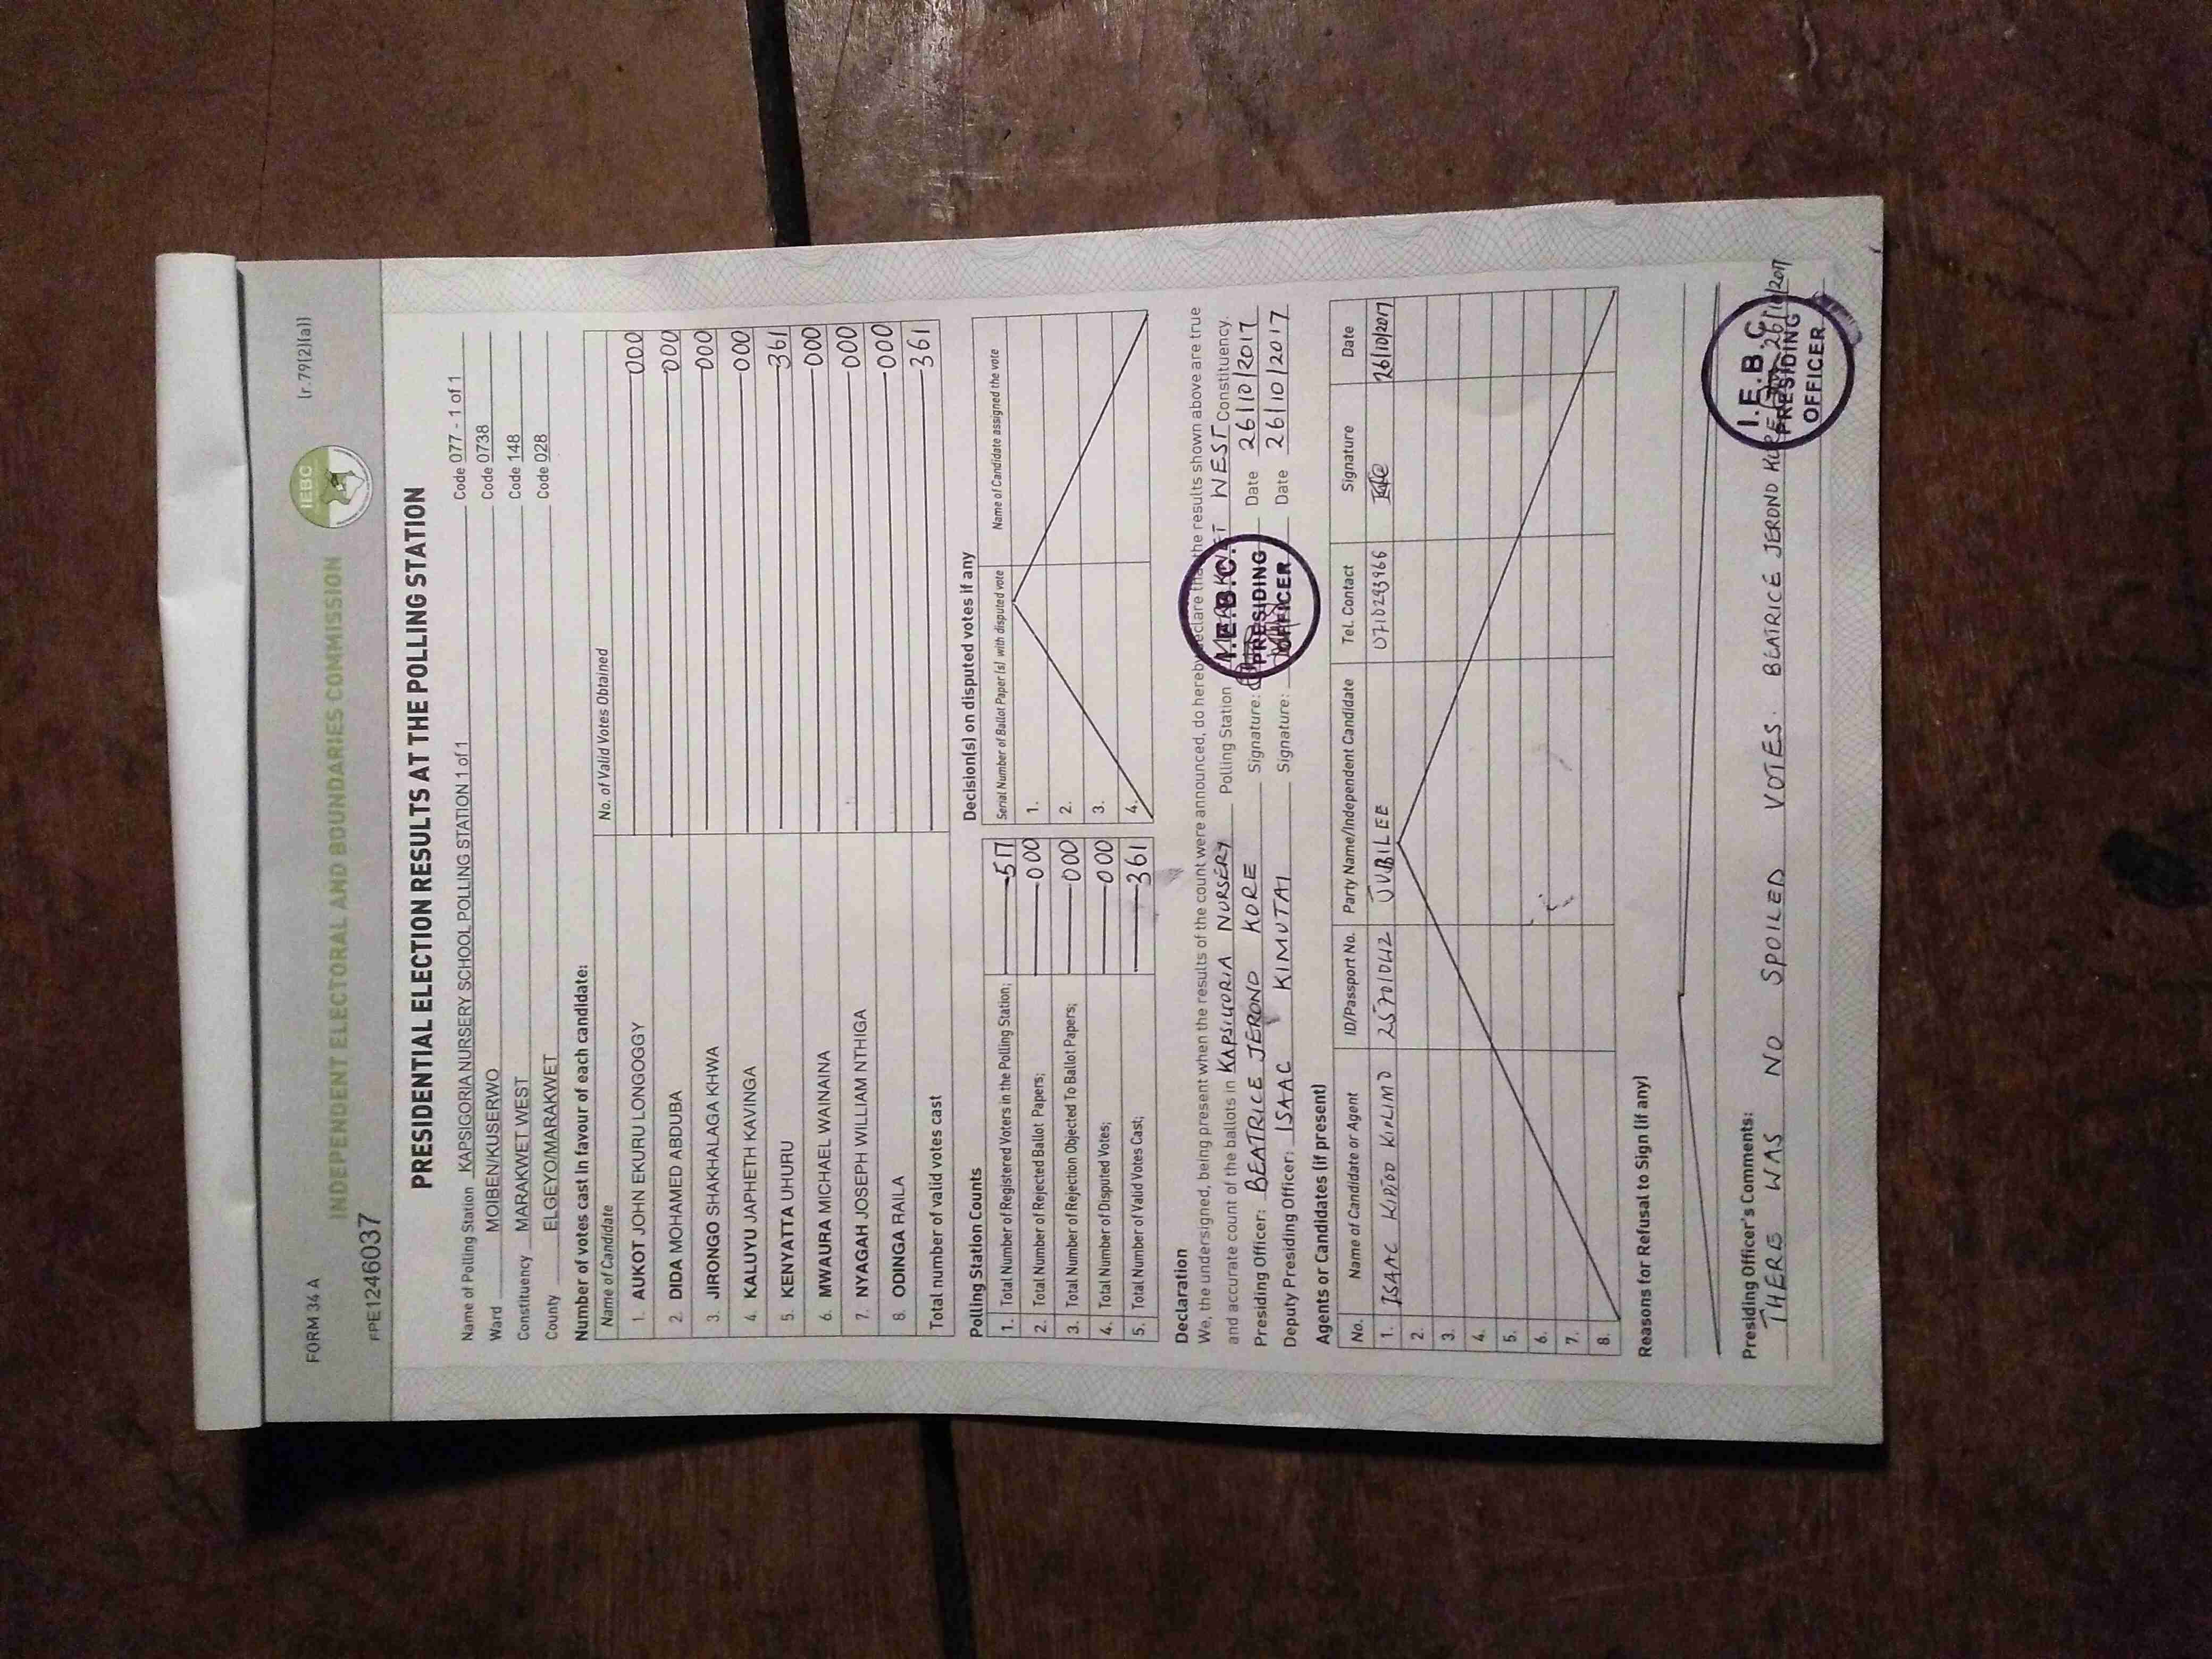 FORM 34 A
(r.79(2)(a))
INDEPENDENT ELECTORAL AND BOUNDARIES COMMISSION
IEBC
FPE1246037
PRESIDENTIAL ELECTION RESULTS AT THE POLLING STATION
Name of Polling Station KAPSIGORIA NURSERY SCHOOL POLLING STATION 1 of 1 Code 077 - 1 of 1
Ward MOIBEN/KUSERWO Code 0738
Constituency MARAKWET WEST Code 148
County ELGEYO/MARAKWET Code 028
Number of votes cast in favour of each candidate:
Name of Candidate No. of Valid Votes Obtained
1. AUKOT JOHN EKURU LONGOGGY 000
2. DIDA MOHAMED ABDUBA 000
3. JIRONGO SHAKHALAGA KHWA 000
4. KALUYU JAPHETH KAVINGA 000
5. KENYATTA UHURU 361
6. MWAURA MICHAEL WAINAINA 000
7. NYAGAH JOSEPH WILLIAM NTHIGA 000
8. ODINGA RAILA 000
Total number of valid votes cast 361
Polling Station Counts
1. Total Number of Registered Voters in the Polling Station; 517
2. Total Number of Rejected Ballot Papers; 000
3. Total Number of Rejection Objected To Ballot Papers; 000
4. Total Number of Disputed Votes; 000
5. Total Number of Valid Votes Cast; 361
Decision(s) on disputed votes if any
Serial Number of Ballot Paper (s) with disputed vote Name of Candidate assigned the vote
1.
2.
3.
4.
Declaration
We, the undersigned, being present when the results of the count were announced, do hereby declare that the results shown above are true
and accurate count of the ballots in KAPSIGORIA NURSERY Polling Station MARAKWET WEST Constituency.
Presiding Officer: BEATRICE JEROND KORE Signature: Date 26/10/2017
Deputy Presiding Officer: ISAAC KIMUTAI Signature: Date 26/10/2017
I.E.B.C.
PRESIDING
OFFICER
Agents or Candidates (if present)
No. Name of Candidate or Agent ID/Passport No. Party Name/Independent Candidate Tel. Contact Signature Date
1. ISAAC 25701042 JUBILEE 0710293966 26/10/2017
2.
3.
4.
5.
6.
7.
8.
Reasons for Refusal to Sign (if any)
Presiding Officer's Comments:
THERE WAS NO SPOILED VOTES. BEATRICE JEROND KORE 26/10/2017
I.E.B.C
PRESIDING
OFFICER